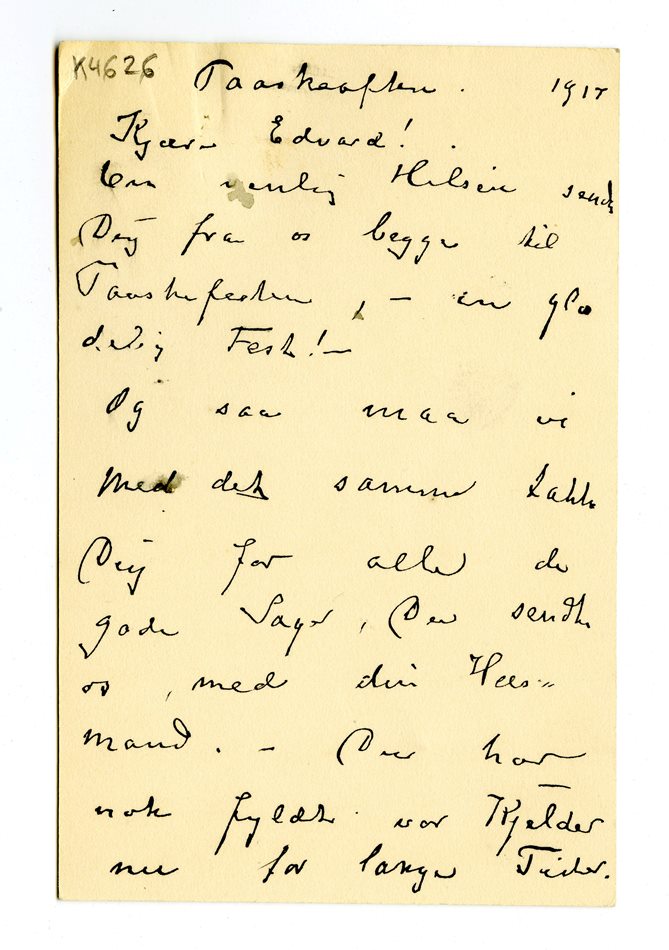 K4626
Paaskeaften. 1917
Kjære Edvard!
En venlig Hilsen sendes
Dig fra os begge til
Paaskefesten, – en glæ
delig Fest! –
Og saa maa vi
med det samme takke
Dig for alle de
gode Sager, Du sendte
os, med din Huus=
mand. – Du har
nok fyldt vor Kjelder
nu for lange Tider.